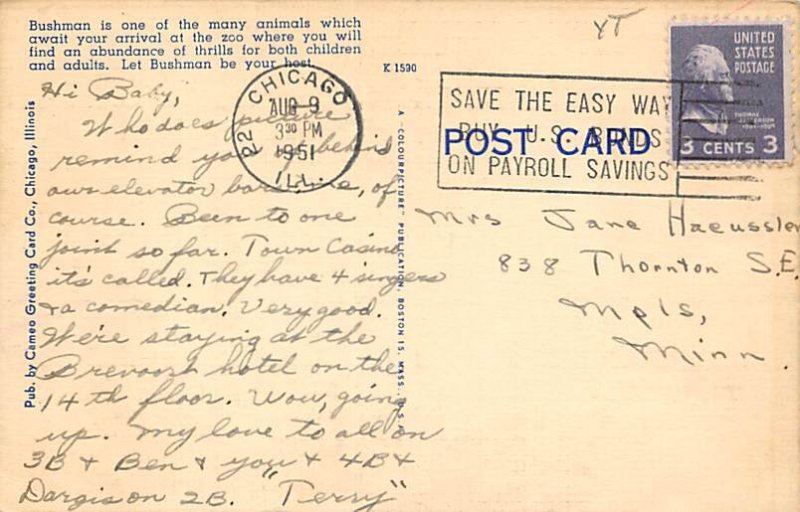 Bushman is one of the many animals which
await your arrival at the zoo where you will
find an abundance of thrills for both children
and adults. Let Bushman be your host.
K 1590
YT
CHICAGO
AUG 9
3 30 PM
1951
ILL.
P2
SAVE THE EASY WAY
BUY U.S. BONDS
ON PAYROLL SAVINGS
POST CARD
UNITED
STATES
POSTAGE
THOMAS
JEFFERSON
3 CENTS 3
Pub. by Cameo Greeting Card Co., Chicago, Illinois
A "COLOURPICTURE" PUBLICATION, BOSTON 15, MASS., U.S.A.
Hi Baby,
Who does picture
remind you behind
our elevator bars, me, of
course. Been to one
joint so far. Town Casino
it's called. They have 4 singers
& a comedian. Very good.
We're staying at the
Brevoort hotel on the
14th floor. Wow, going
up. My love to all on
3B & Ben & you & 4B &
Dargis on 2B. "Terry"
Mrs Jane Haeussler
838 Thornton S.E.
Mpls,
Minn